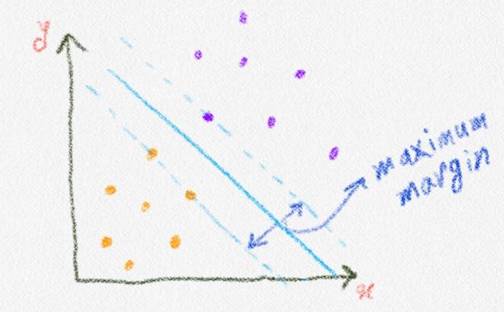 y
maximum
margin
x